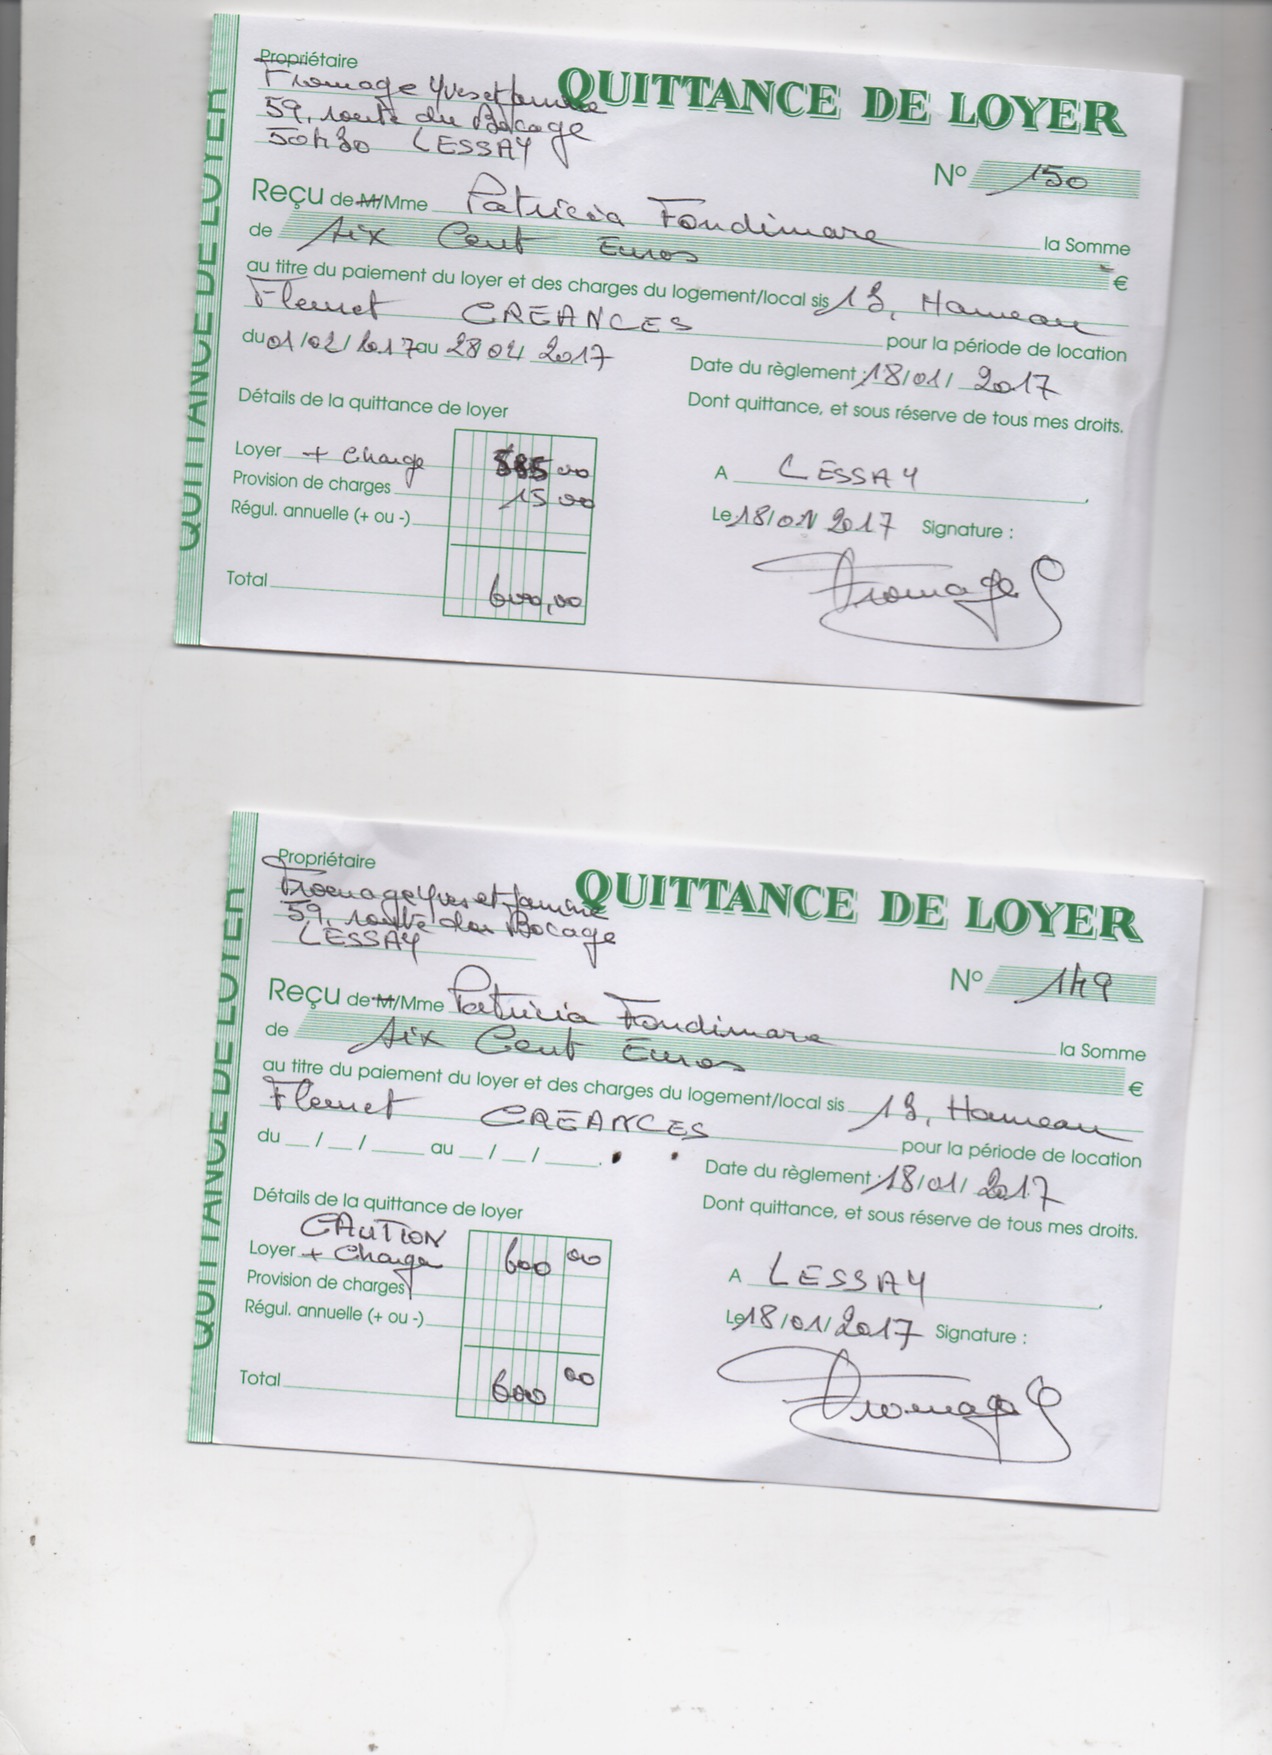 QUITTANCE DE LOYER
Propriétaire
Fromage Yves et Janine
59, route du Bocage
50430 LESSAY
QUITTANCE DE LOYER
N° 150
Reçu de M/Mme Patricia Fondimare
la Somme
de Six Cent Euros €
au titre du paiement du loyer et des charges du logement/local sis 13, Hameau
Flemet CREANCES
pour la période de location
du 01/02/2017 au 28 02 2017
Date du règlement : 18/01/2017
Dont quittance, et sous réserve de tous mes droits.
Détails de la quittance de loyer
Loyer + Charge 585 00
Provision de charges 15 00
Régul. annuelle (+ ou -)
Total 600,00
A LESSAY,
Le 18/01 2017 Signature :
Fromage
QUITTANCE DE LOYER
Propriétaire
Fromage Yves et Janine
59, route du Bocage
LESSAY
QUITTANCE DE LOYER
N° 149
Reçu de M/Mme Patricia Fondimare
la Somme
de Six Cent Euros €
au titre du paiement du loyer et des charges du logement/local sis 13, Hameau
Flemet CREANCES
pour la période de location
du __/__/____ au __/__/____.
Date du règlement : 18/01/2017
Dont quittance, et sous réserve de tous mes droits.
Détails de la quittance de loyer
CAUTION
Loyer + Charge 600 00
Provision de charges
Régul. annuelle (+ ou -)
Total 600 00
A LESSAY,
Le 18/01/2017 Signature :
Fromage